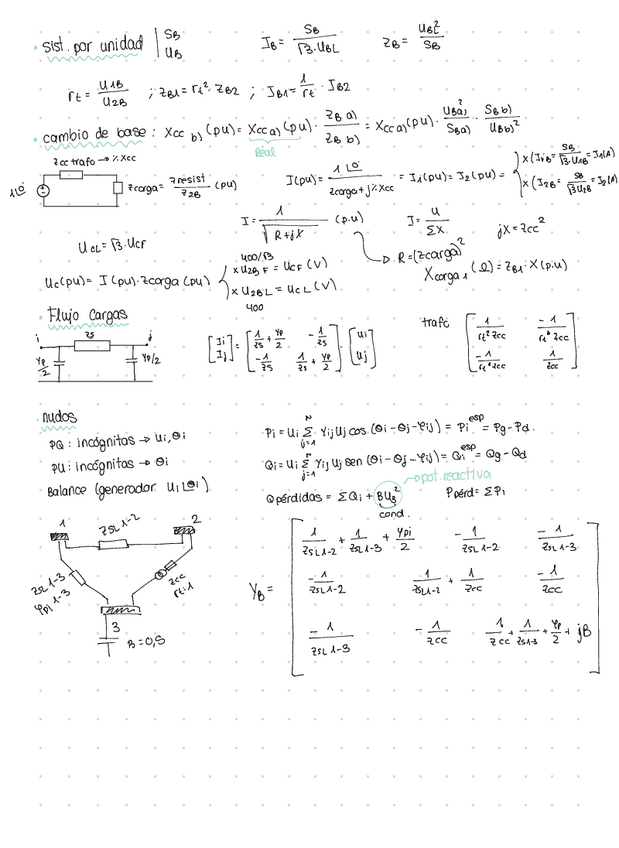 • sist. por unidad | SB UB    IB = SB / √3·UBL    ZB = UBL² / SB
rt = U1B / U2B ; ZB1 = rt²·ZB2 ; IB1 = 1/rt · IB2
• cambio de base : Xcc b) (pu) = Xcc a) (pu) · ZB a) / ZB b) = Xcc a) (pu) · UBa)² / SBa) · SB b) / UBb)²
Real
Zcc trafo → %Xcc
1∠0    Zcarga = Zresist / Z2B (pu)    I(pu) = 1∠0 / Zcarga + j%Xcc = I1(pu) = I2(pu) = { x (I1B = SB / √3·U1B = I1(A)
x (I2B = SB / √3U2B = I2(A)
I = 1 / √R+jX (p.u)    I = U / ΣX    jX = Zcc²
UCL = √3·UCF    → R = (Zcarga)²
Uc(pu) = I(pu)·Zcarga(pu) { 400/√3 x U2B F = UCF (V)    Xcarga1 (Ω) = ZB1·X(p.u)
x U2B L = UCL (V)
400
• Flujo cargas
i    Zs    j    Yp/2    Yp/2    [Ii Ij] = [1/Zs + Yp/2    -1/Zs    -1/Zs    1/Zs + Yp/2] · [Ui Uj]    trafo [1/rt²Zcc    -1/rt*Zcc    -1/rt*Zcc    1/Zcc]
• nudos
PQ : incógnitas → Ui, θi    Pi = Ui Σ j=1 N Yij Uj cos (θi - θj - φij) = Pi esp = Pg - Pd.
PU : incógnitas → θi    Qi = Ui Σ j=1 Yij Uj sen (θi - θj - φij) = Qi esp = Qg - Qd
Balance (generador Ui∠θi)    → pot. reactiva
Qpérdidas = ΣQi + BU3²    Ppérd = ΣPi
cond.
1    ZSL1-2    2
ZSL1-3    Ypi 1-3    Zcc    rt=1
3    B = 0,8
YB = [1/ZSL1-2 + 1/ZSL1-3 + Ypi/2    -1/ZSL1-2    -1/ZSL1-3
-1/ZSL1-2    1/ZSL1-2 + 1/Zcc    -1/Zcc
-1/ZSL1-3    -1/Zcc    1/Zcc + 1/ZSL1-3 + Yp/2 + jB]